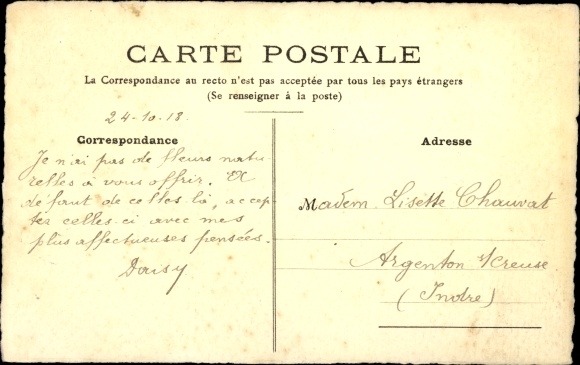 CARTE POSTALE
La Correspondance au recto n'est pas acceptée par tous les pays étrangers
(Se renseigner à la poste)
24-10-18.
Correspondance
Adresse
Je n'ai pas de fleurs natu-
relles à vous offrir. A
defaut de celles-là, accep-
tez celles-ci avec mes
plus affectueuses pensées.
Daisy
Madem. Lisette Chauvat
Argenton s/creuse
(Indre)